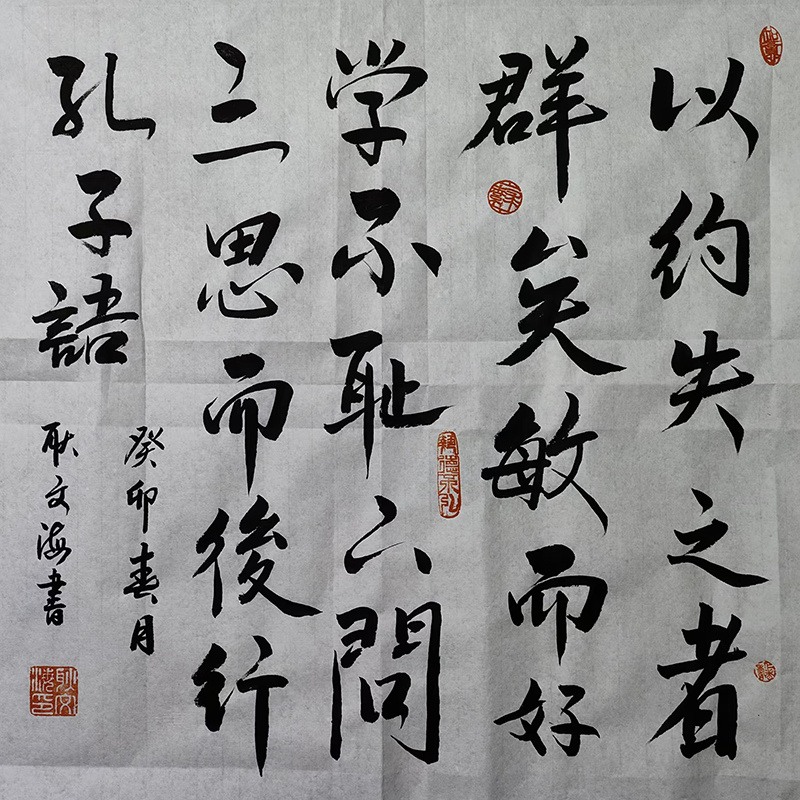 以约失之者
群矣敏而好
学不耻下問
三思而後行
孔子語
癸卯春月
耿文海書
耿文海印